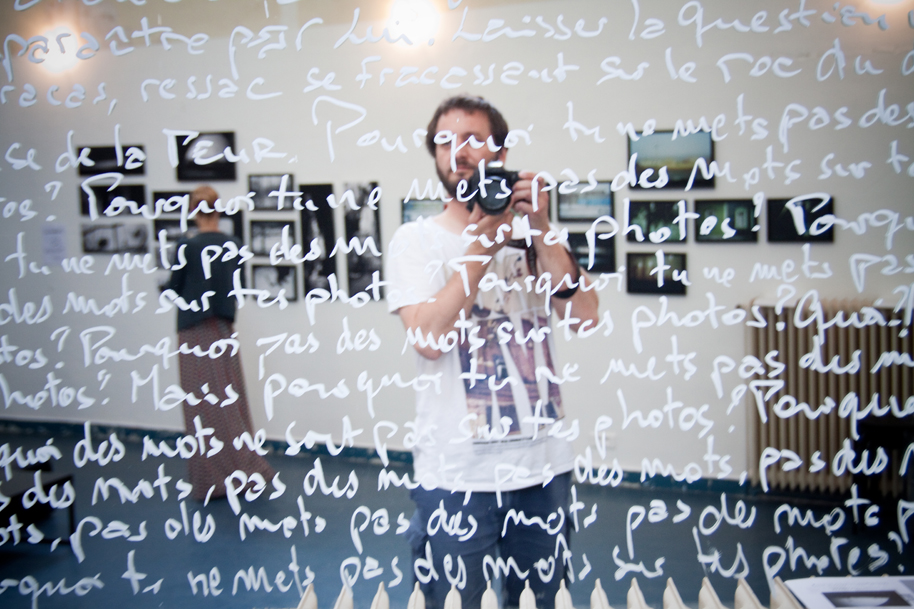 paraître par lui. Laisser la question
racas, ressac se fracassant sur le roc du
se de la Peur. Pourquoi tu ne mets pas des
os? Pourquoi tu ne mets pas des mots sur t
tu ne mets pas des m sur tes photos? Pourqu
des mots sur tes phot ? Pourquoi tu ne mets pas
tos? Pourquoi pas des mots sur tes photos? Quoi?
hotos? Mais pourquoi tu ne mets pas des m
quoi des mots ne sont pas sur tes photos? Pourquo
s des mots, pas des mots, pas des mots, pas des m
ots, pas des mets pas des mots pas des mots P
rquoi tu ne mets pas des mots sur tes photos?